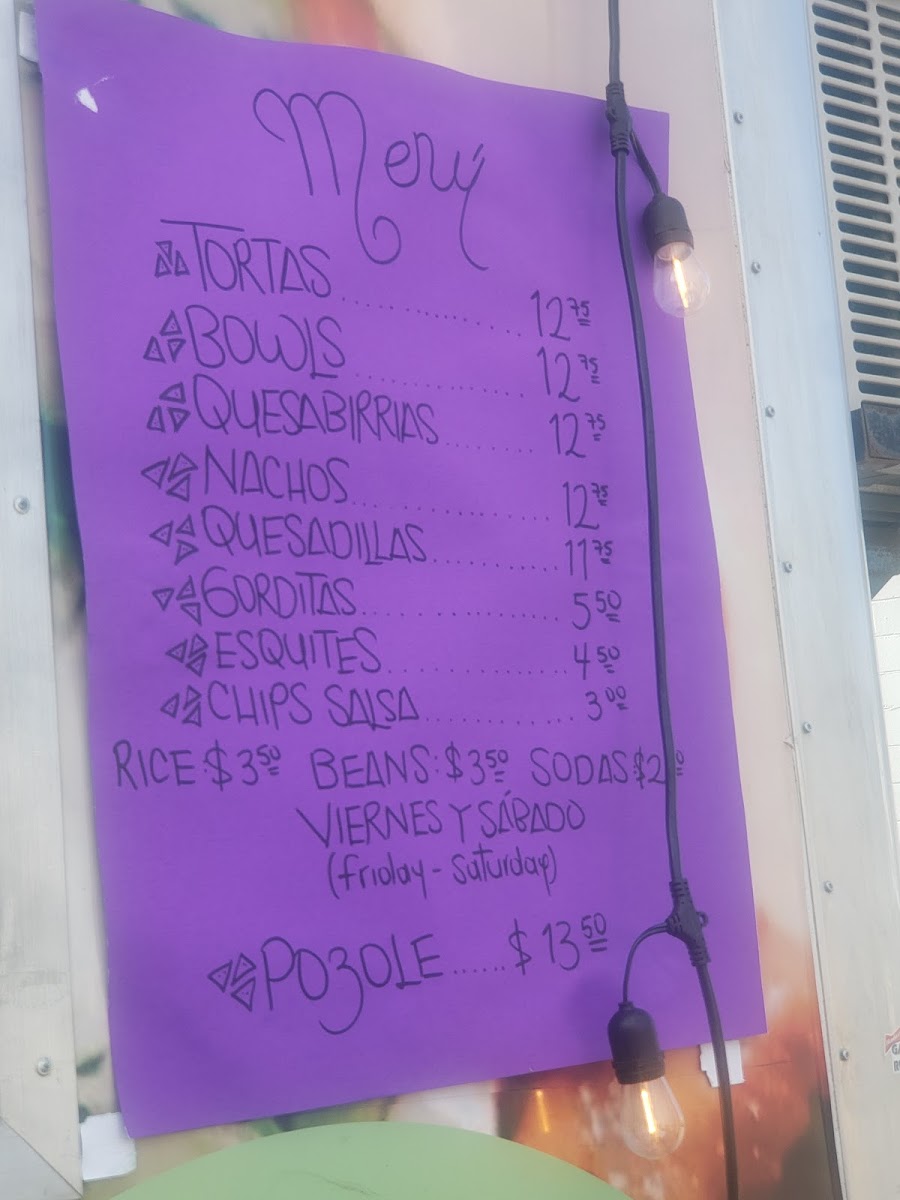 Meny
TORTAS.................12.75
BOWLS.................12.75
QUESABIRRIAS........12.75
NACHOS.................12.75
QUESADILLAS...........11.75
GORDITAS.................5.50
ESQUITES.................4.50
CHIPS SALSA............3.00
RICE:$3.50 BEANS:$3.50 SODAS:
VIERNES Y SÁBADO
(friday - Saturday)
POZOLE......$13.50